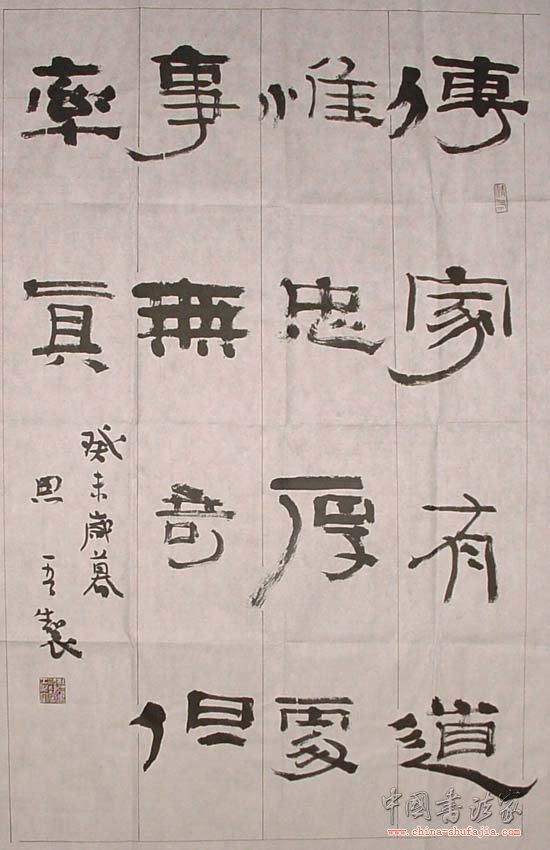 傳家有道
惟忠厚處
事無奇但
率真
癸未歲暮
思一吾製
中国书法家
www.china-shufajia.com